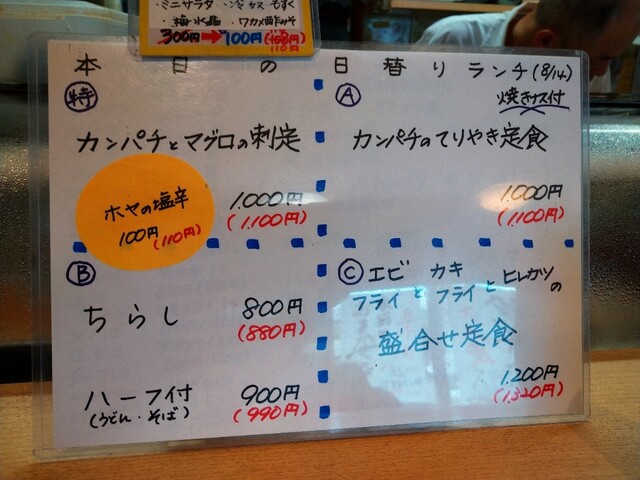 ミニサラダ ・冷
もずく
梅水晶 ・ワカメ酢みそ
300円→100円(108円)
110円
本日の日替りランチ(8/14)
特
カンパチとマグロの刺定
1.000円
(1.100円)
ホヤの塩辛
100円(110円)
A
焼きナス付
カンパチのてりやき定食
1.000円
(1.100円)
B
ちらし 800円
(880円)
ハーフ付 900円
(うどん・そば) (990円)
C
エビフライとカキフライとヒレカツの
盛合せ定食
1.200円
(1.320円)